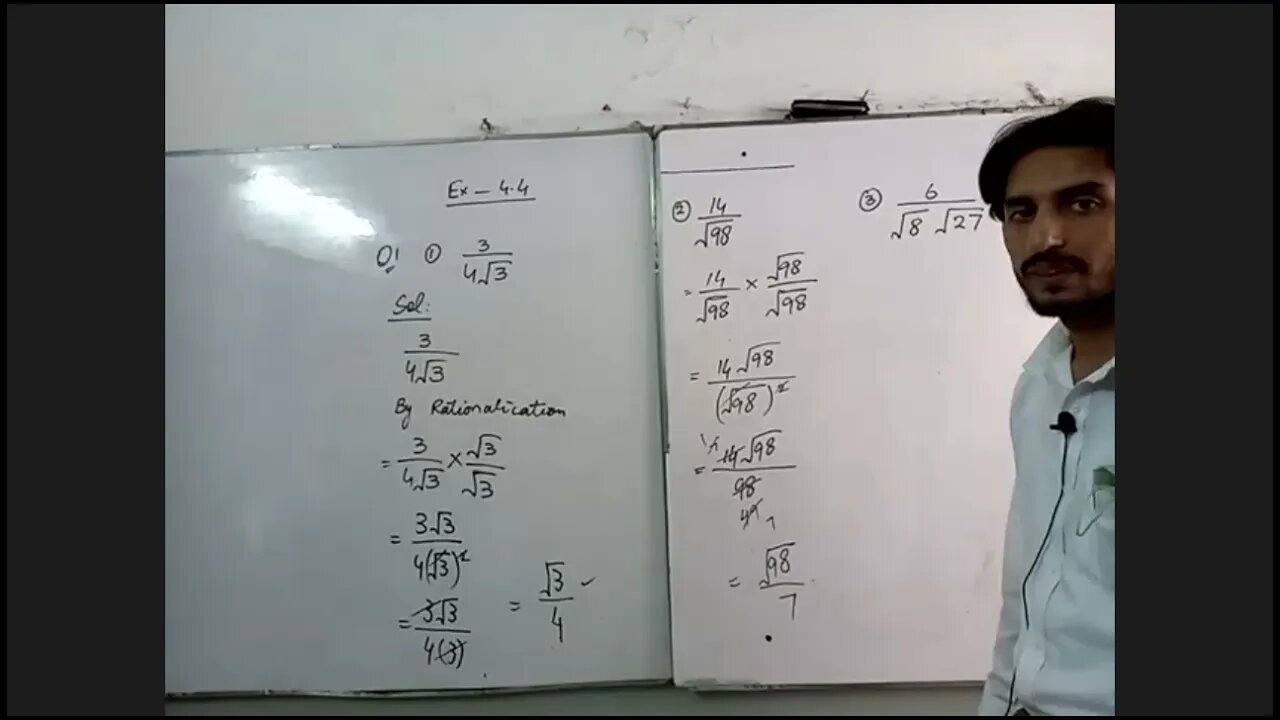 Ex – 4.4
Q1 ① 3/4√3
Sol:
3/4√3
By Rationalication
= 3/4√3 × √3/√3
= 3√3/4(√3)²
= 3√3/4(3) = √3/4 ✓
② 14/√98
= 14/√98 × √98/√98
= 14√98/(√98)²
= 14√98/98
49 7
= √98/7
③ 6/√8 √27